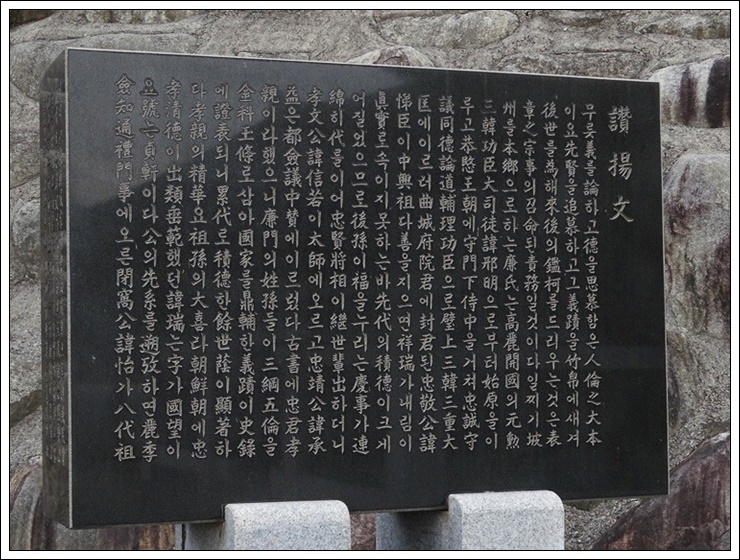 讚揚文
무릇 義를 論하고 德을 思慕함은 人倫之大本
이요 先賢을 追慕하고 그 義蹟을 竹帛에 새겨
後世를 爲해 來後의 鑑柯를 드리우는 것은 表
章之宗事의 召命된 責務일것이다 일찌기 坡
州를 本鄕으로 하는 廉氏는 高麗開國의 元勳
三韓功臣大司徒諱邢明으로부터 始原을 이
루고 恭愍王朝에 守門下侍中을 거쳐 忠誠守
議同德論道輔理功臣으로 壁上三韓三重大
匡에 이르러 曲城府院君에 封君된 忠敬公諱
悌臣이 中興祖다 善을 지으면 祥瑞가 내림이
眞實로 속이지 못하는바 先代의 積德이 크게
어질었으므로 後孫이 福을 누리는 慶事가 連
綿히 代를 이어 忠賢將相이 繼世輩出하더니
孝文公諱信若이 太師에 오르고 忠靖公諱承
益은 都僉議中贊에 이르렀다 古書에 忠君孝
親이라 했으니 廉門의 姓孫들이 三綱五倫을
金科玉條로 삼아 國家를 鼎輔한 義蹟이 史錄
에 證表되니 累代로 積德한 餘世蔭이 顯著하
다 孝親의 精華요 祖孫의 大喜라 朝鮮朝에 忠
孝淸德이 出類垂範했던 諱瑞는 字가 國望이
요 號는 貞軒이다 公의 先系를 遡攷하면 麗季
僉知通禮門事에 오른 閉萬公諱怡가 八代祖